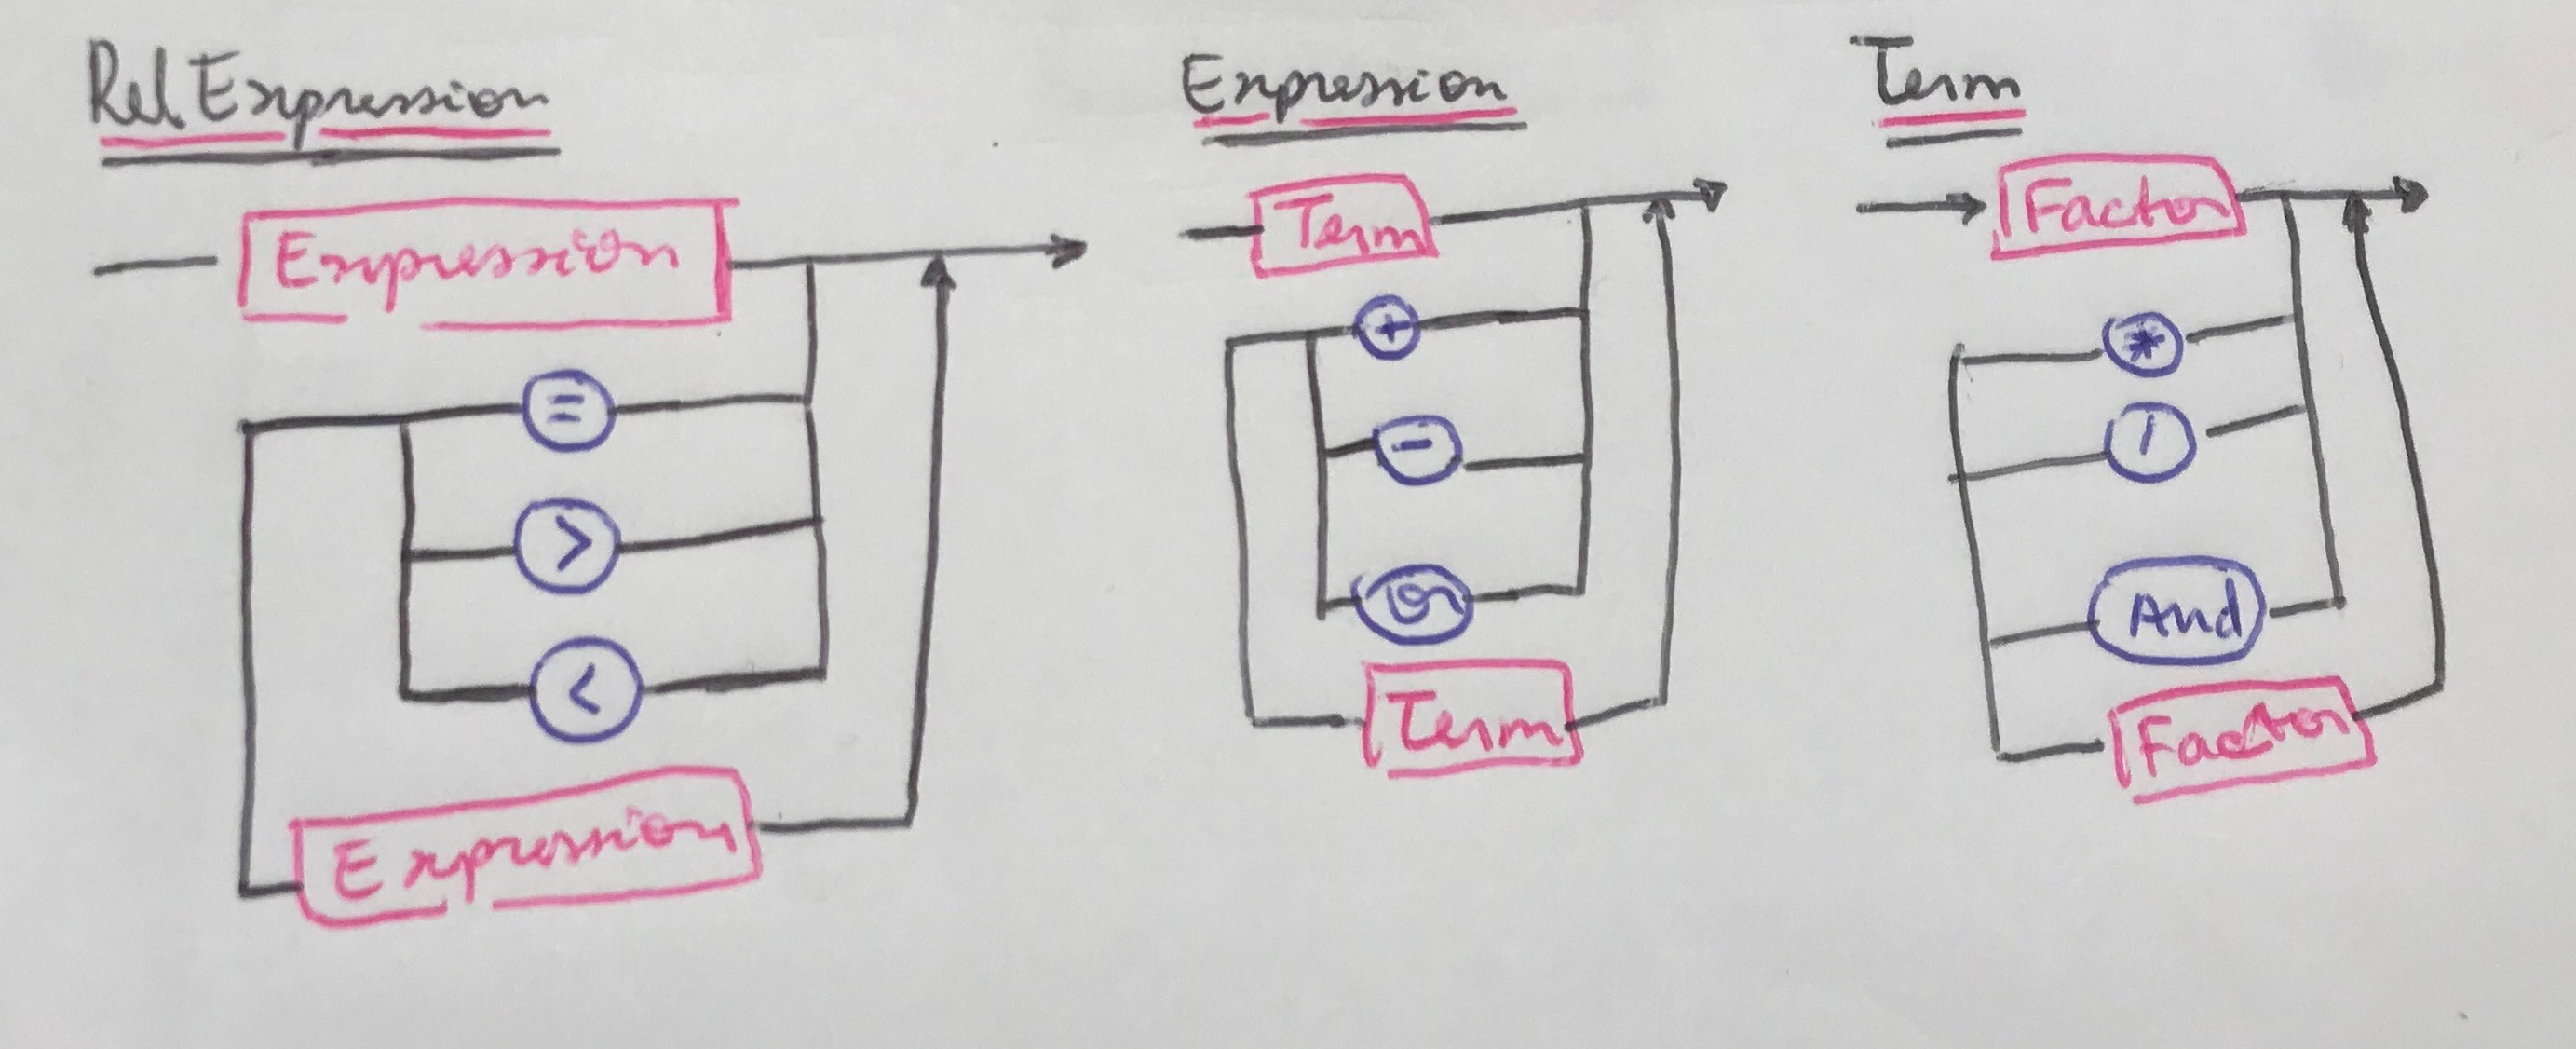 Rel Expression
Expression
=
>
<
Expression
Expression
Term
+
-
or
Term
Term
Factor
*
/
And
Factor